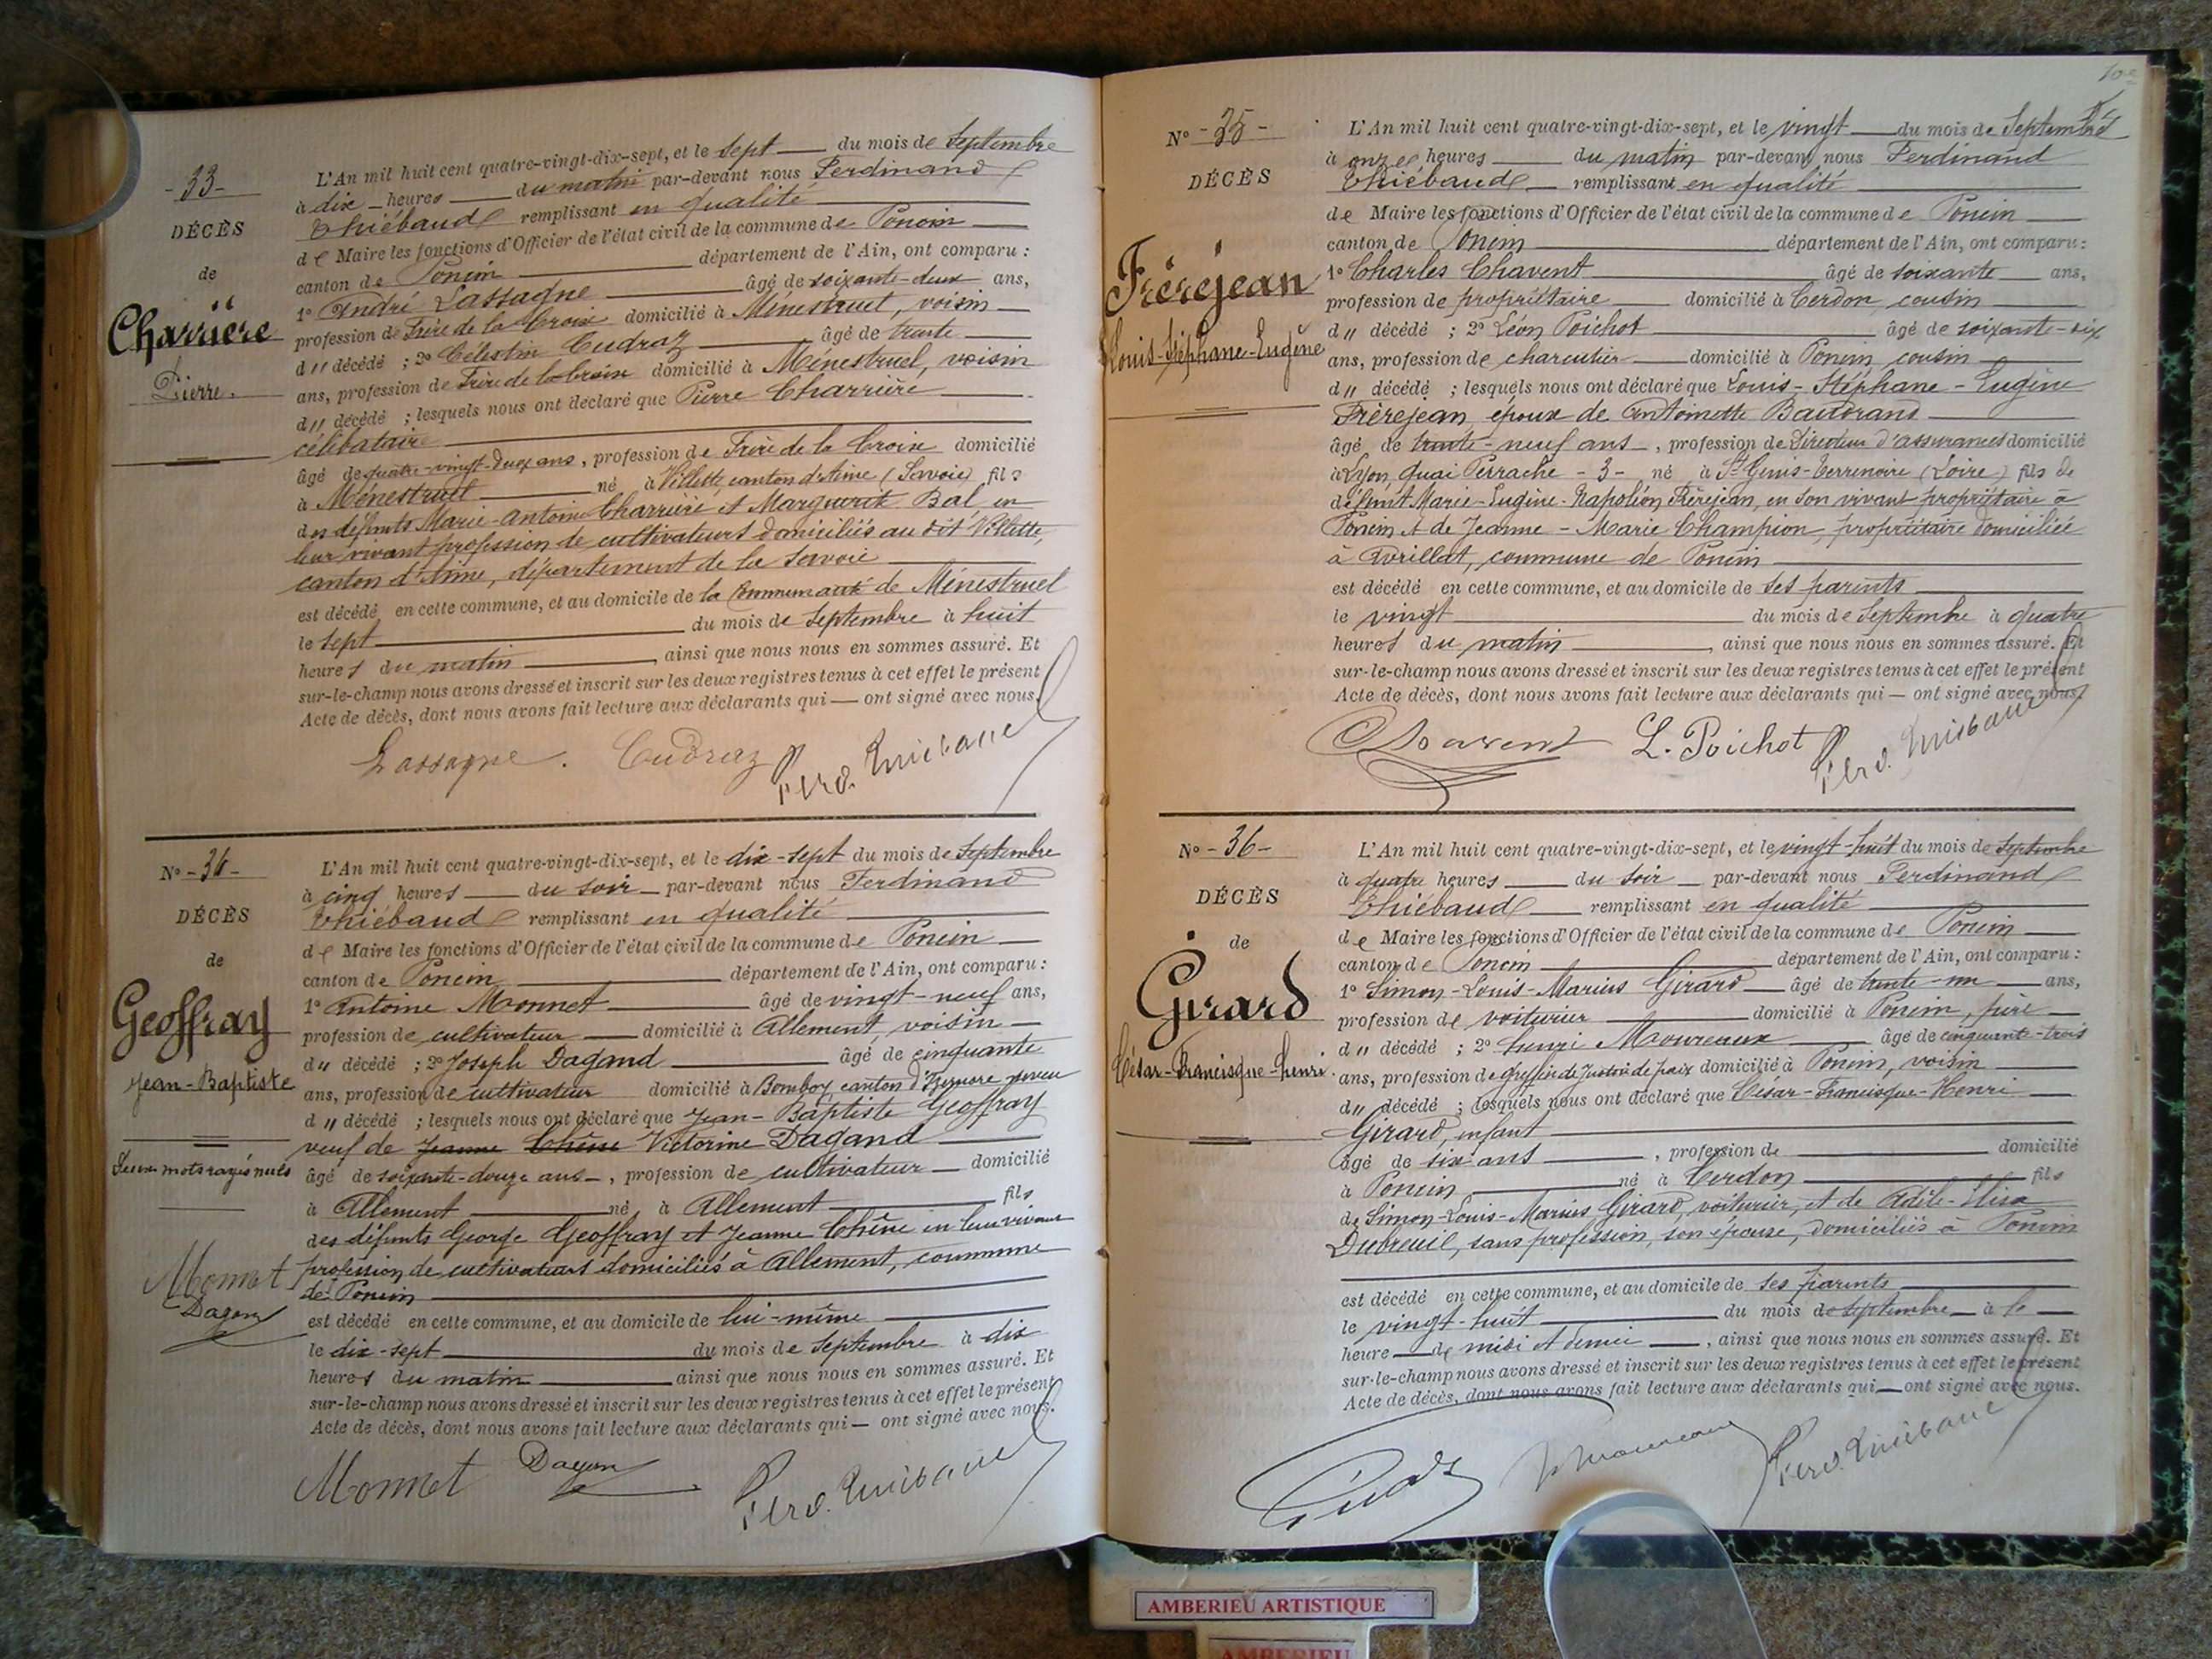 - 33 -
DÉCÈS
de
Charrière
Pierre.
L'An mil huit cent quatre-vingt-dix-sept, et le sept du mois de Septembre
à dix heures du matin par-devant nous Ferdinand
Thiébaud remplissant en qualité
de Maire les fonctions d'Officier de l'état civil de la commune de Poncin
canton de Poncin département de l'Ain, ont comparu :
1º André Lassagne âgé de soixante-deux ans,
profession de Frère de la Croix domicilié à Ménestruel, voisin
d'' décédé ; 2º Célestin Cudraz âgé de trente
ans, profession de Frère de la Croix domicilié à Ménestruel, voisin
d'' décédé ; lesquels nous ont déclaré que Pierre Charrière
célibataire
âgé de quatre-vingt-deux ans, profession de Frère de la Croix domicilié
à Ménestruel né à Villette, canton d'Aime (Savoie) fils
des défunts Marie-Antoine Charrière et Marguerite Bal, en
leur vivant profession de cultivateurs domiciliés au dit Villette,
canton d'Aime, département de la Savoie
est décédé en cette commune, et au domicile de la Communauté de Ménestruel
le sept du mois de Septembre à huit
heures du matin, ainsi que nous nous en sommes assuré. Et
sur-le-champ nous avons dressé et inscrit sur les deux registres tenus à cet effet le présent
Acte de décès, dont nous avons fait lecture aux déclarants qui — ont signé avec nous.
Lassagne. Cudraz Ferd. Thiébaud
Nº - 34 -
DÉCÈS
de
Geoffray
Jean-Baptiste
mots rayés nuls
Monnet
Dagand
L'An mil huit cent quatre-vingt-dix-sept, et le dix-sept du mois de Septembre
à cinq heures du soir par-devant nous Ferdinand
Thiébaud remplissant en qualité
de Maire les fonctions d'Officier de l'état civil de la commune de Poncin
canton de Poncin département de l'Ain, ont comparu :
1º Antoine Monnet âgé de vingt-neuf ans,
profession de cultivateur domicilié à Allement, voisin
d'' décédé ; 2º Joseph Dagand âgé de cinquante
ans, profession de cultivateur domicilié à Bombois canton d'Izernore neveu
d'' décédé ; lesquels nous ont déclaré que Jean-Baptiste Geoffray
veuf de Jeanne Chêne Victorine Dagand
âgé de soixante-douze ans, profession de cultivateur domicilié
à Allement né à Allement fils
des défunts George Geoffray et Jeanne Chêne en leur vivant
profession de cultivateurs domiciliés à Allement, commune
de Poncin
est décédé en cette commune, et au domicile de lui-même
le dix-sept du mois de Septembre à dix
heures du matin ainsi que nous nous en sommes assuré. Et
sur-le-champ nous avons dressé et inscrit sur les deux registres tenus à cet effet le présent
Acte de décès, dont nous avons fait lecture aux déclarants qui — ont signé avec nous.
Monnet Dagand Ferd. Thiébaud
Nº - 35 -
DÉCÈS
Frèrejean
Louis-Stéphane-Eugène
L'An mil huit cent quatre-vingt-dix-sept, et le vingt du mois de Septembre
à onze heures du matin par-devant nous Ferdinand
Thiébaud remplissant en qualité
de Maire les fonctions d'Officier de l'état civil de la commune de Poncin
canton de Poncin département de l'Ain, ont comparu :
1º Charles Chavent âgé de soixante ans,
profession de propriétaire domicilié à Cerdon, cousin
d'' décédé ; 2º Léon Poichot âgé de soixante-six
ans, profession de charcutier domicilié à Poncin, cousin
d'' décédé ; lesquels nous ont déclaré que Louis-Stéphane-Eugène
Frèrejean, époux de Antoinette Baudrand
âgé de trente-neuf ans, profession de Directeur d'assurances domicilié
à Lyon, quai Perrache - 3 - né à St Genis-Terrenoire (Loire) fils de
défunt Marie-Eugène-Napoléon Frèrejean, en son vivant propriétaire à
Poncin et de Jeanne-Marie Champion, propriétaire domiciliée
à Avrillat, commune de Poncin
est décédé en cette commune, et au domicile de ses parents
le vingt du mois de Septembre à quatre
heures du matin, ainsi que nous nous en sommes assuré. Et
sur-le-champ nous avons dressé et inscrit sur les deux registres tenus à cet effet le présent
Acte de décès, dont nous avons fait lecture aux déclarants qui — ont signé avec nous.
Chavent L. Poichot Ferd. Thiébaud
Nº - 36 -
DÉCÈS
de
Girard
César-Francisque-Henri.
L'An mil huit cent quatre-vingt-dix-sept, et le vingt-huit du mois de Septembre
à quatre heures du soir par-devant nous Ferdinand
Thiébaud remplissant en qualité
de Maire les fonctions d'Officier de l'état civil de la commune de Poncin
canton de Poncin département de l'Ain, ont comparu :
1º Simon-Louis-Marius Girard âgé de trente-un ans,
profession de voiturier domicilié à Poncin, père
d'' décédé ; 2º Henri Moureaux âgé de cinquante-trois
ans, profession de greffier de Justice de paix domicilié à Poncin, voisin
d'' décédé ; lesquels nous ont déclaré que César-Francisque-Henri
Girard, enfant
âgé de six ans, profession de domicilié
à Poncin né à Cerdon fils
de Simon-Louis-Marius Girard, voiturier, et de Adèle-Élisa
Dubreuil, sans profession, son épouse, domiciliés à Poncin
est décédé en cette commune, et au domicile de ses parents
le vingt-huit du mois de Septembre à le
heure de midi et demie, ainsi que nous nous en sommes assuré. Et
sur-le-champ nous avons dressé et inscrit sur les deux registres tenus à cet effet le présent
Acte de décès, dont nous avons fait lecture aux déclarants qui — ont signé avec nous.
Girard Moureaux Ferd. Thiébaud
AMBERIEU ARTISTIQUE
AMBERIEU